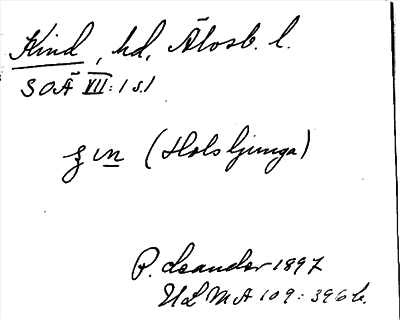 Kind, hd, Älvsb. l.
SOÄ VII:1 s.1
(Holsljunga)
P. Leander 1897
ULMA 109:396 b.